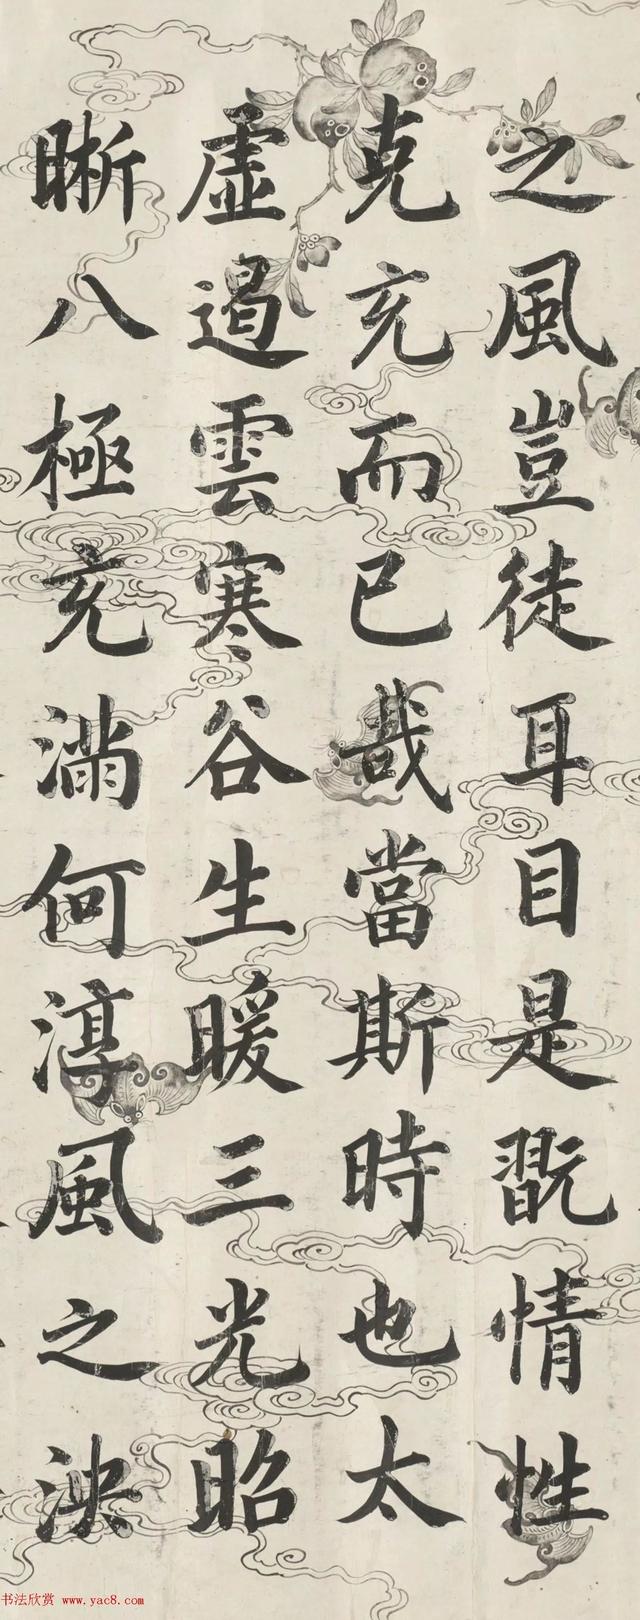 之風豈徒耳目是翫情性
克充而已哉當斯時也太
虚遏雲寒谷生暖三光昭
晰八極充滿何淳風之泱
书法欣赏 www.yac8.com